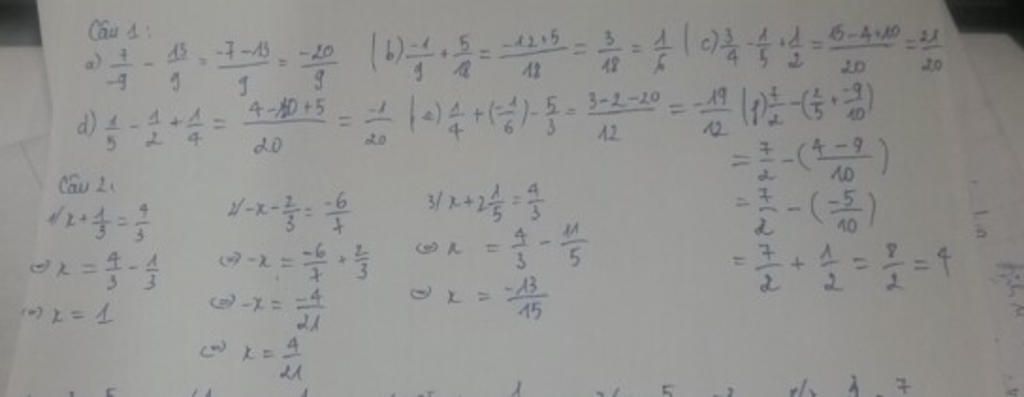 Câu 1:
a) 7/-9 - 13/9 = -7-13/9 = -20/9 | b) -1/9 + 5/18 = -12+5/18 = 3/18 = 1/6 | c) 3/4 - 1/5 + 1/2 = 15-4+10/20 = 21/20
d) 1/5 - 1/2 + 1/4 = 4-10+5/20 = -1/20 | e) 1/4 + (-1/6) - 5/3 = 3-2-20/12 = -19/12 | f) 7/2 - (2/5 + -9/10)
= 7/2 - (4-9/10)
= 7/2 - (-5/10)
= 7/2 + 1/2 = 8/2 = 4
Câu 2:
1/ x + 1/3 = 4/3
⇔ x = 4/3 - 1/3
⇔ x = 1
2/ -x - 2/3 = -6/7
⇔ -x = -6/7 + 2/3
⇔ -x = -4/21
⇔ x = 4/21
3/ x + 2 1/5 = 4/3
⇔ x = 4/3 - 11/5
⇔ x = -13/15